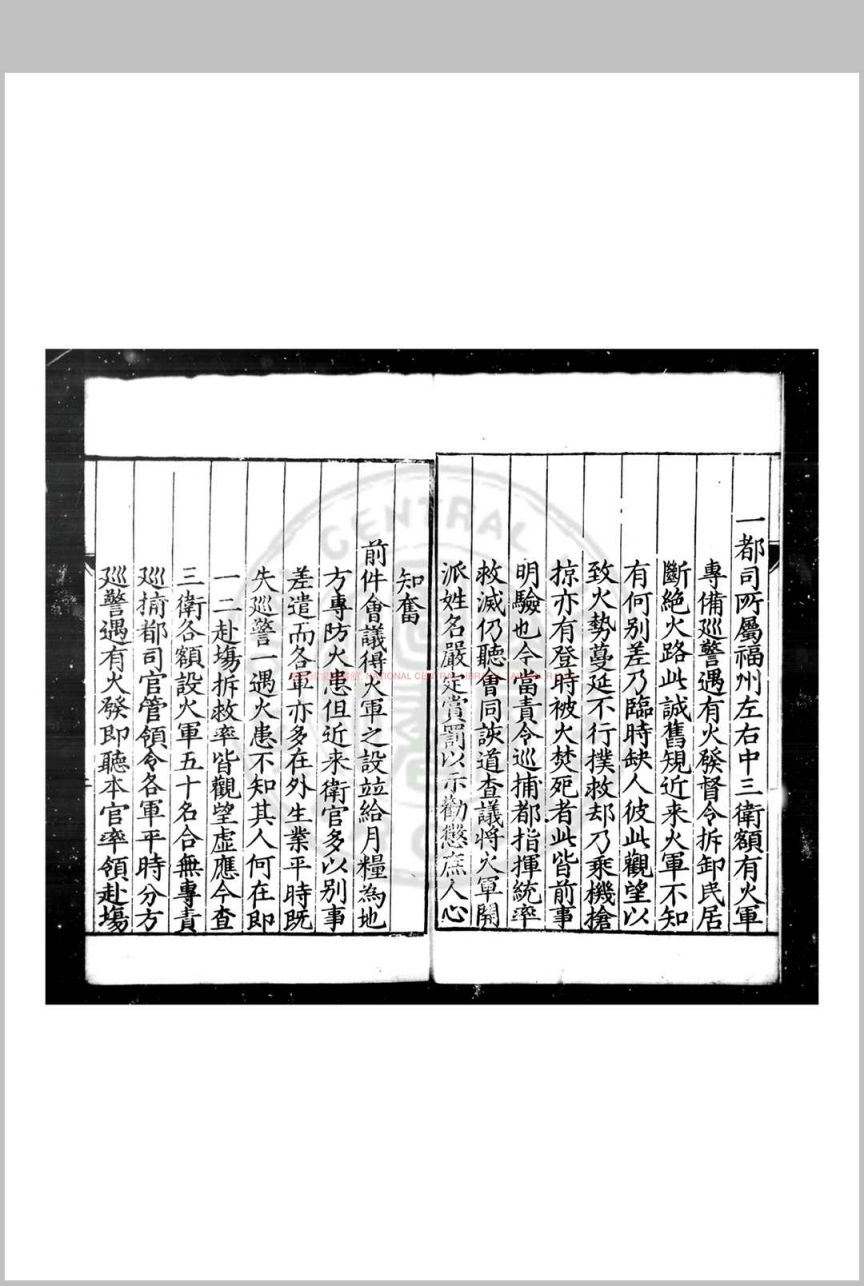 一都司所屬福州左右中三衛額有火軍
專備廵警遇有火發督令拆卸民居
斷絕火路此誠舊規近来火軍不知
有何别差乃臨時缺人彼此觀望以
致火勢蔓延不行撲救却乃乘機搶
掠亦有登時被火焚死者此皆前事
明驗也今當責令巡捕都指揮統率
救滅仍聽會同該道查議將火軍開
派姓名嚴定賞罰以示勸懲庶人心
知奮
前件會議得火軍之設並給月糧為地
方專防火患但近来衛官多以别事
差遣而各軍亦多在外生業平時既
失巡警一遇火患不知其人何在即
一二赴塲拆救率皆觀望虚應今查
三衛各額設火軍五十名合無專責
廵捕都司官管領令各軍平時分方
廵警遇有火發即聽本官率領赴塲